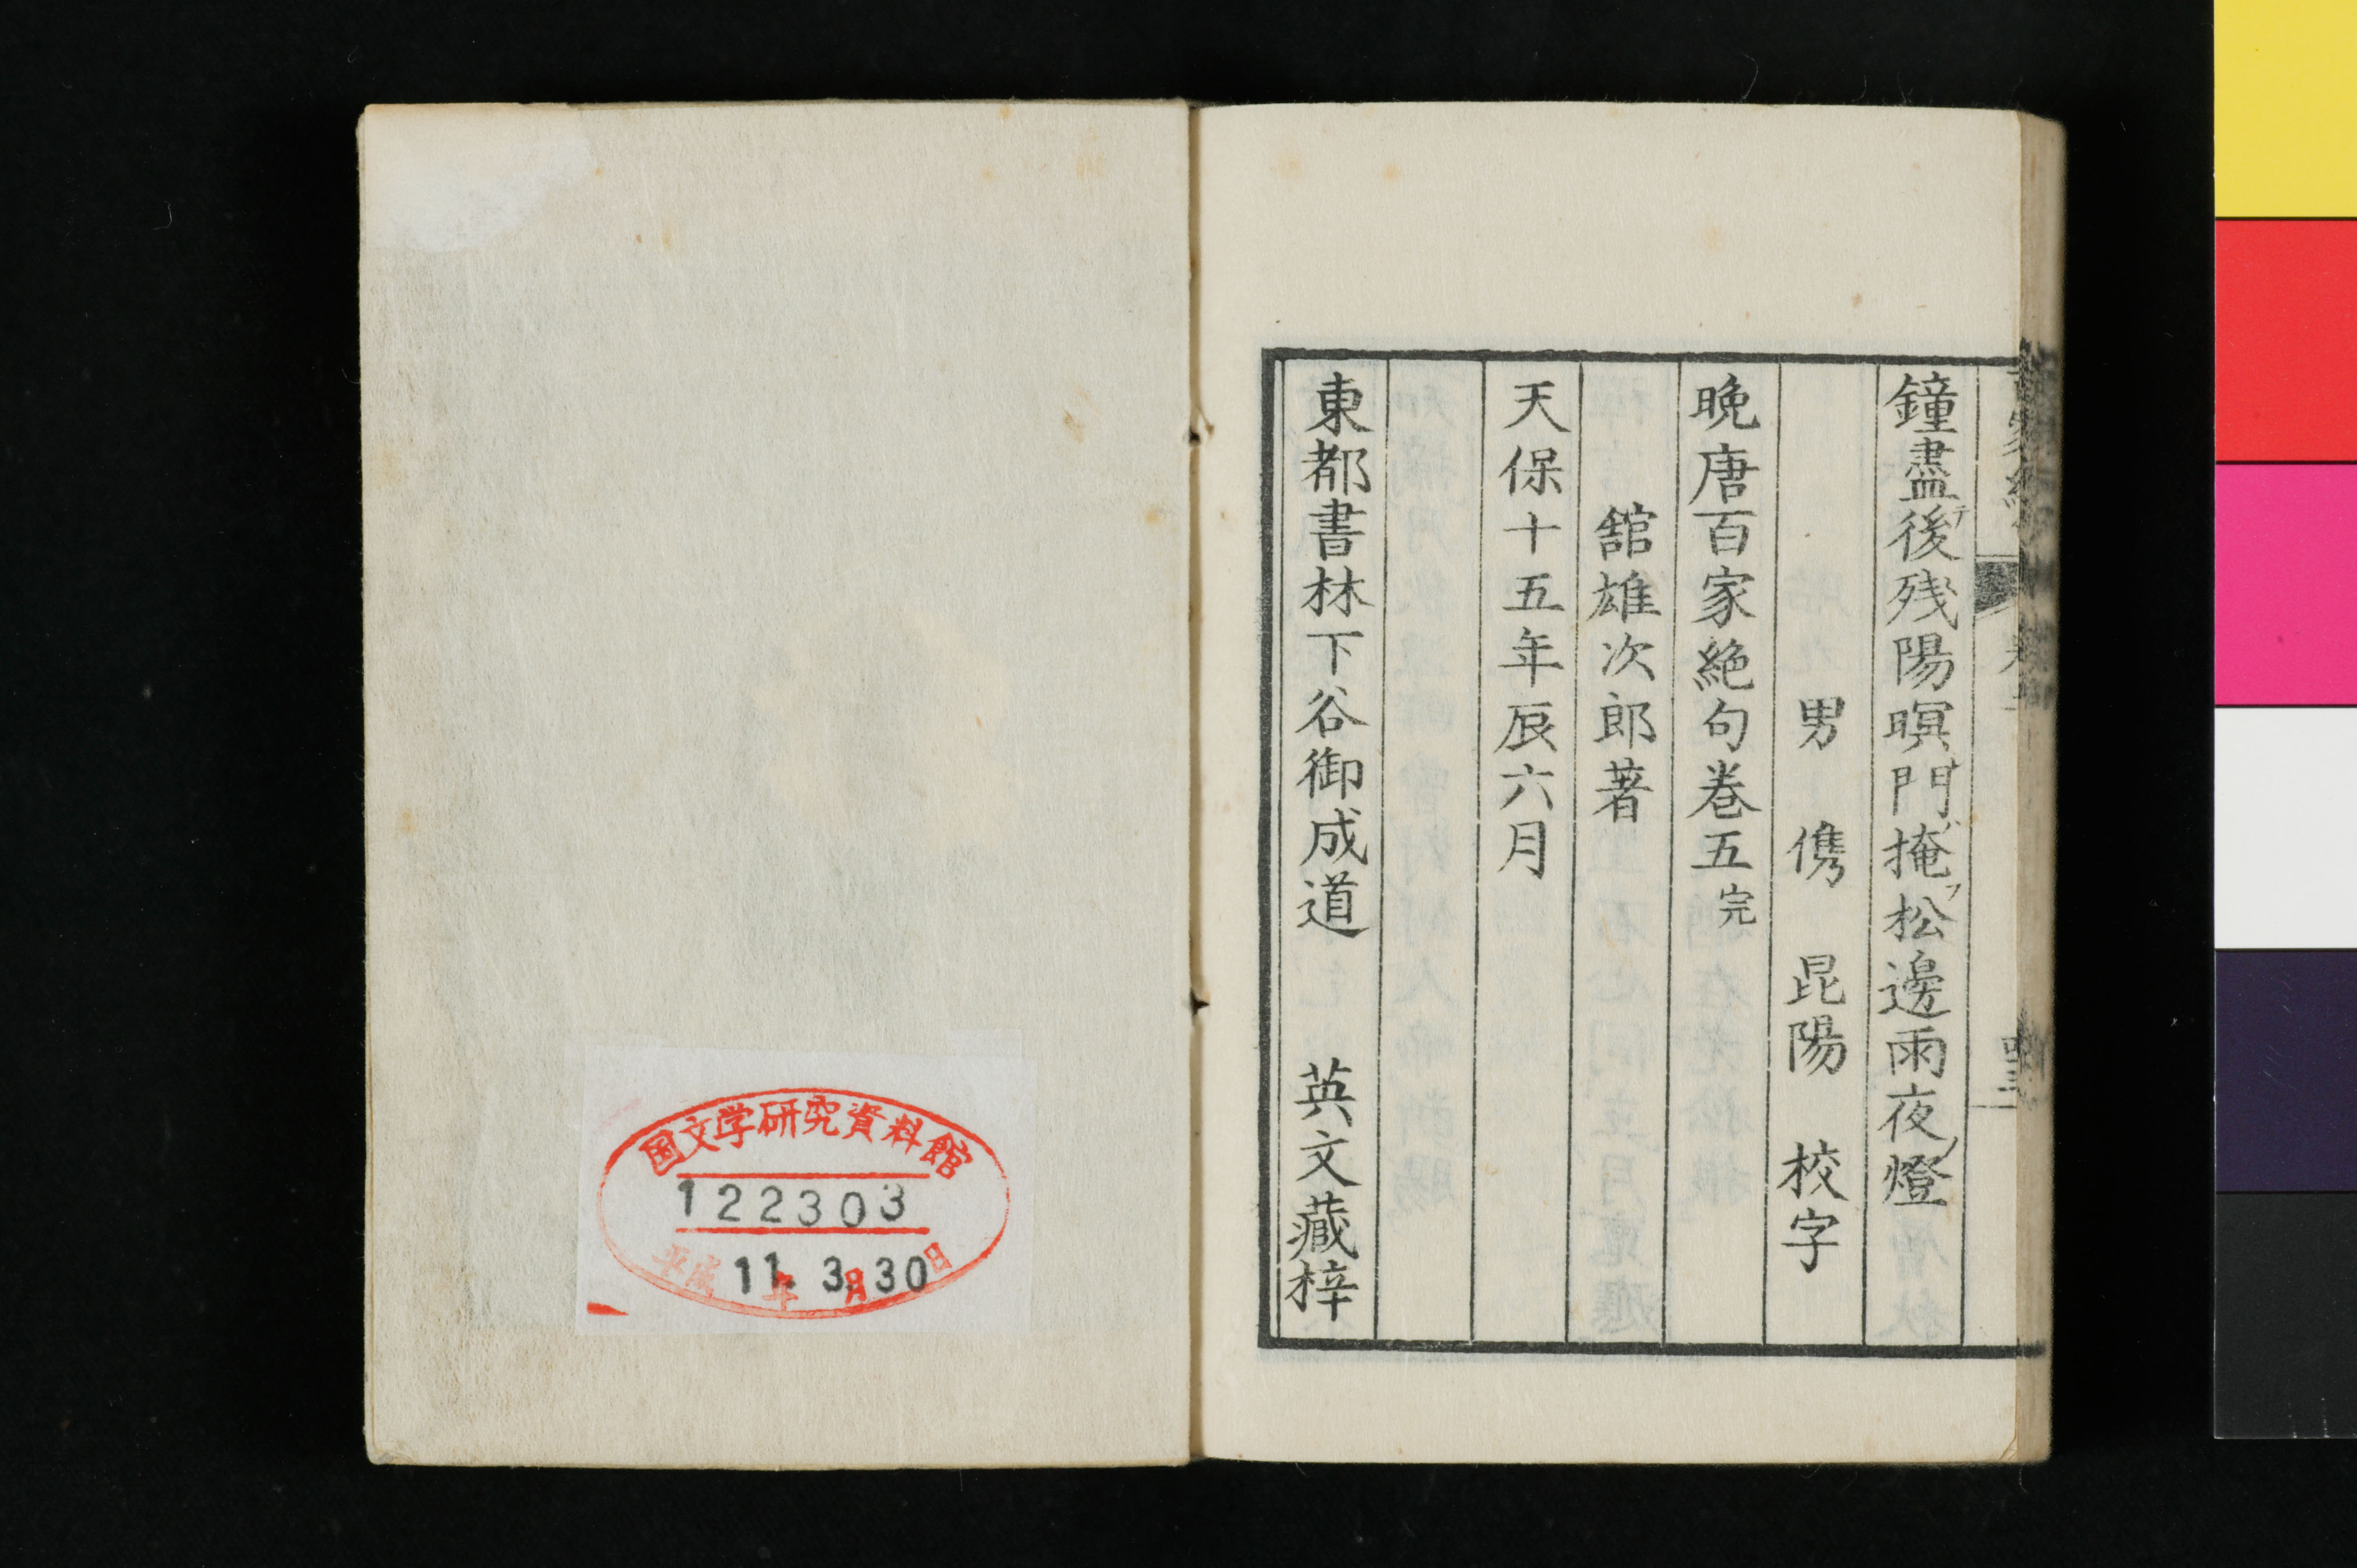 鐘盡後残陽暝門掩松邊雨夜燈
男　儁　昆陽　校字
晩唐百家絶句巻五完
舘雄次郎著
天保十五年辰六月
東都書林下谷御成道　英文藏梓
国文学研究資料館
122303
平成11年3月30日